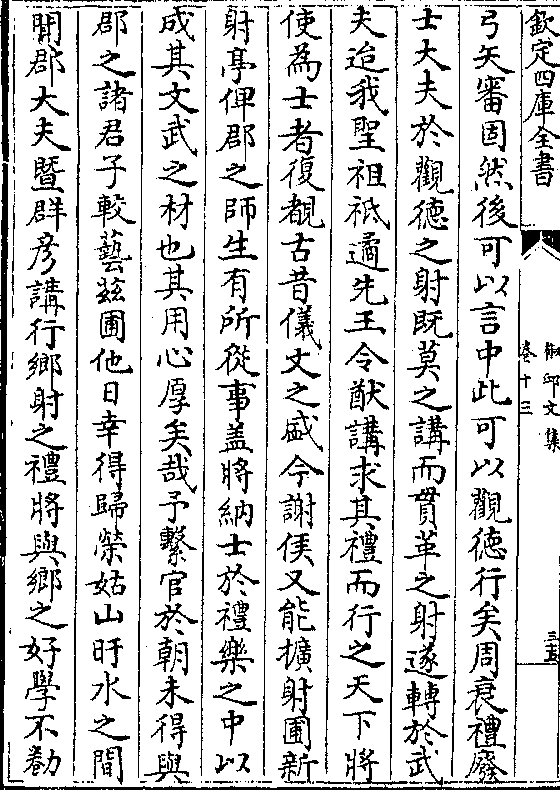 欽定四庫全書
椒邱文集
卷十三
弓矢審固然後可以言中此可以觀徳行矣周衰禮廢
士大夫於觀徳之射既莫之講而貫革之射遂轉於武
夫迨我聖祖祗遹先王令猷講求其禮而行之天下將
使為士者復覩古昔儀文之盛今謝侯又能擴射圃新
射亭俾郡之師生有所從事盖將納士於禮樂之中以
成其文武之材也其用心厚矣哉予繫官於朝未得與
郡之諸君子較藝兹圃他日幸得歸榮姑山旴水之間
間郡大夫暨群彦講行鄉射之禮將與鄉之好學不勌